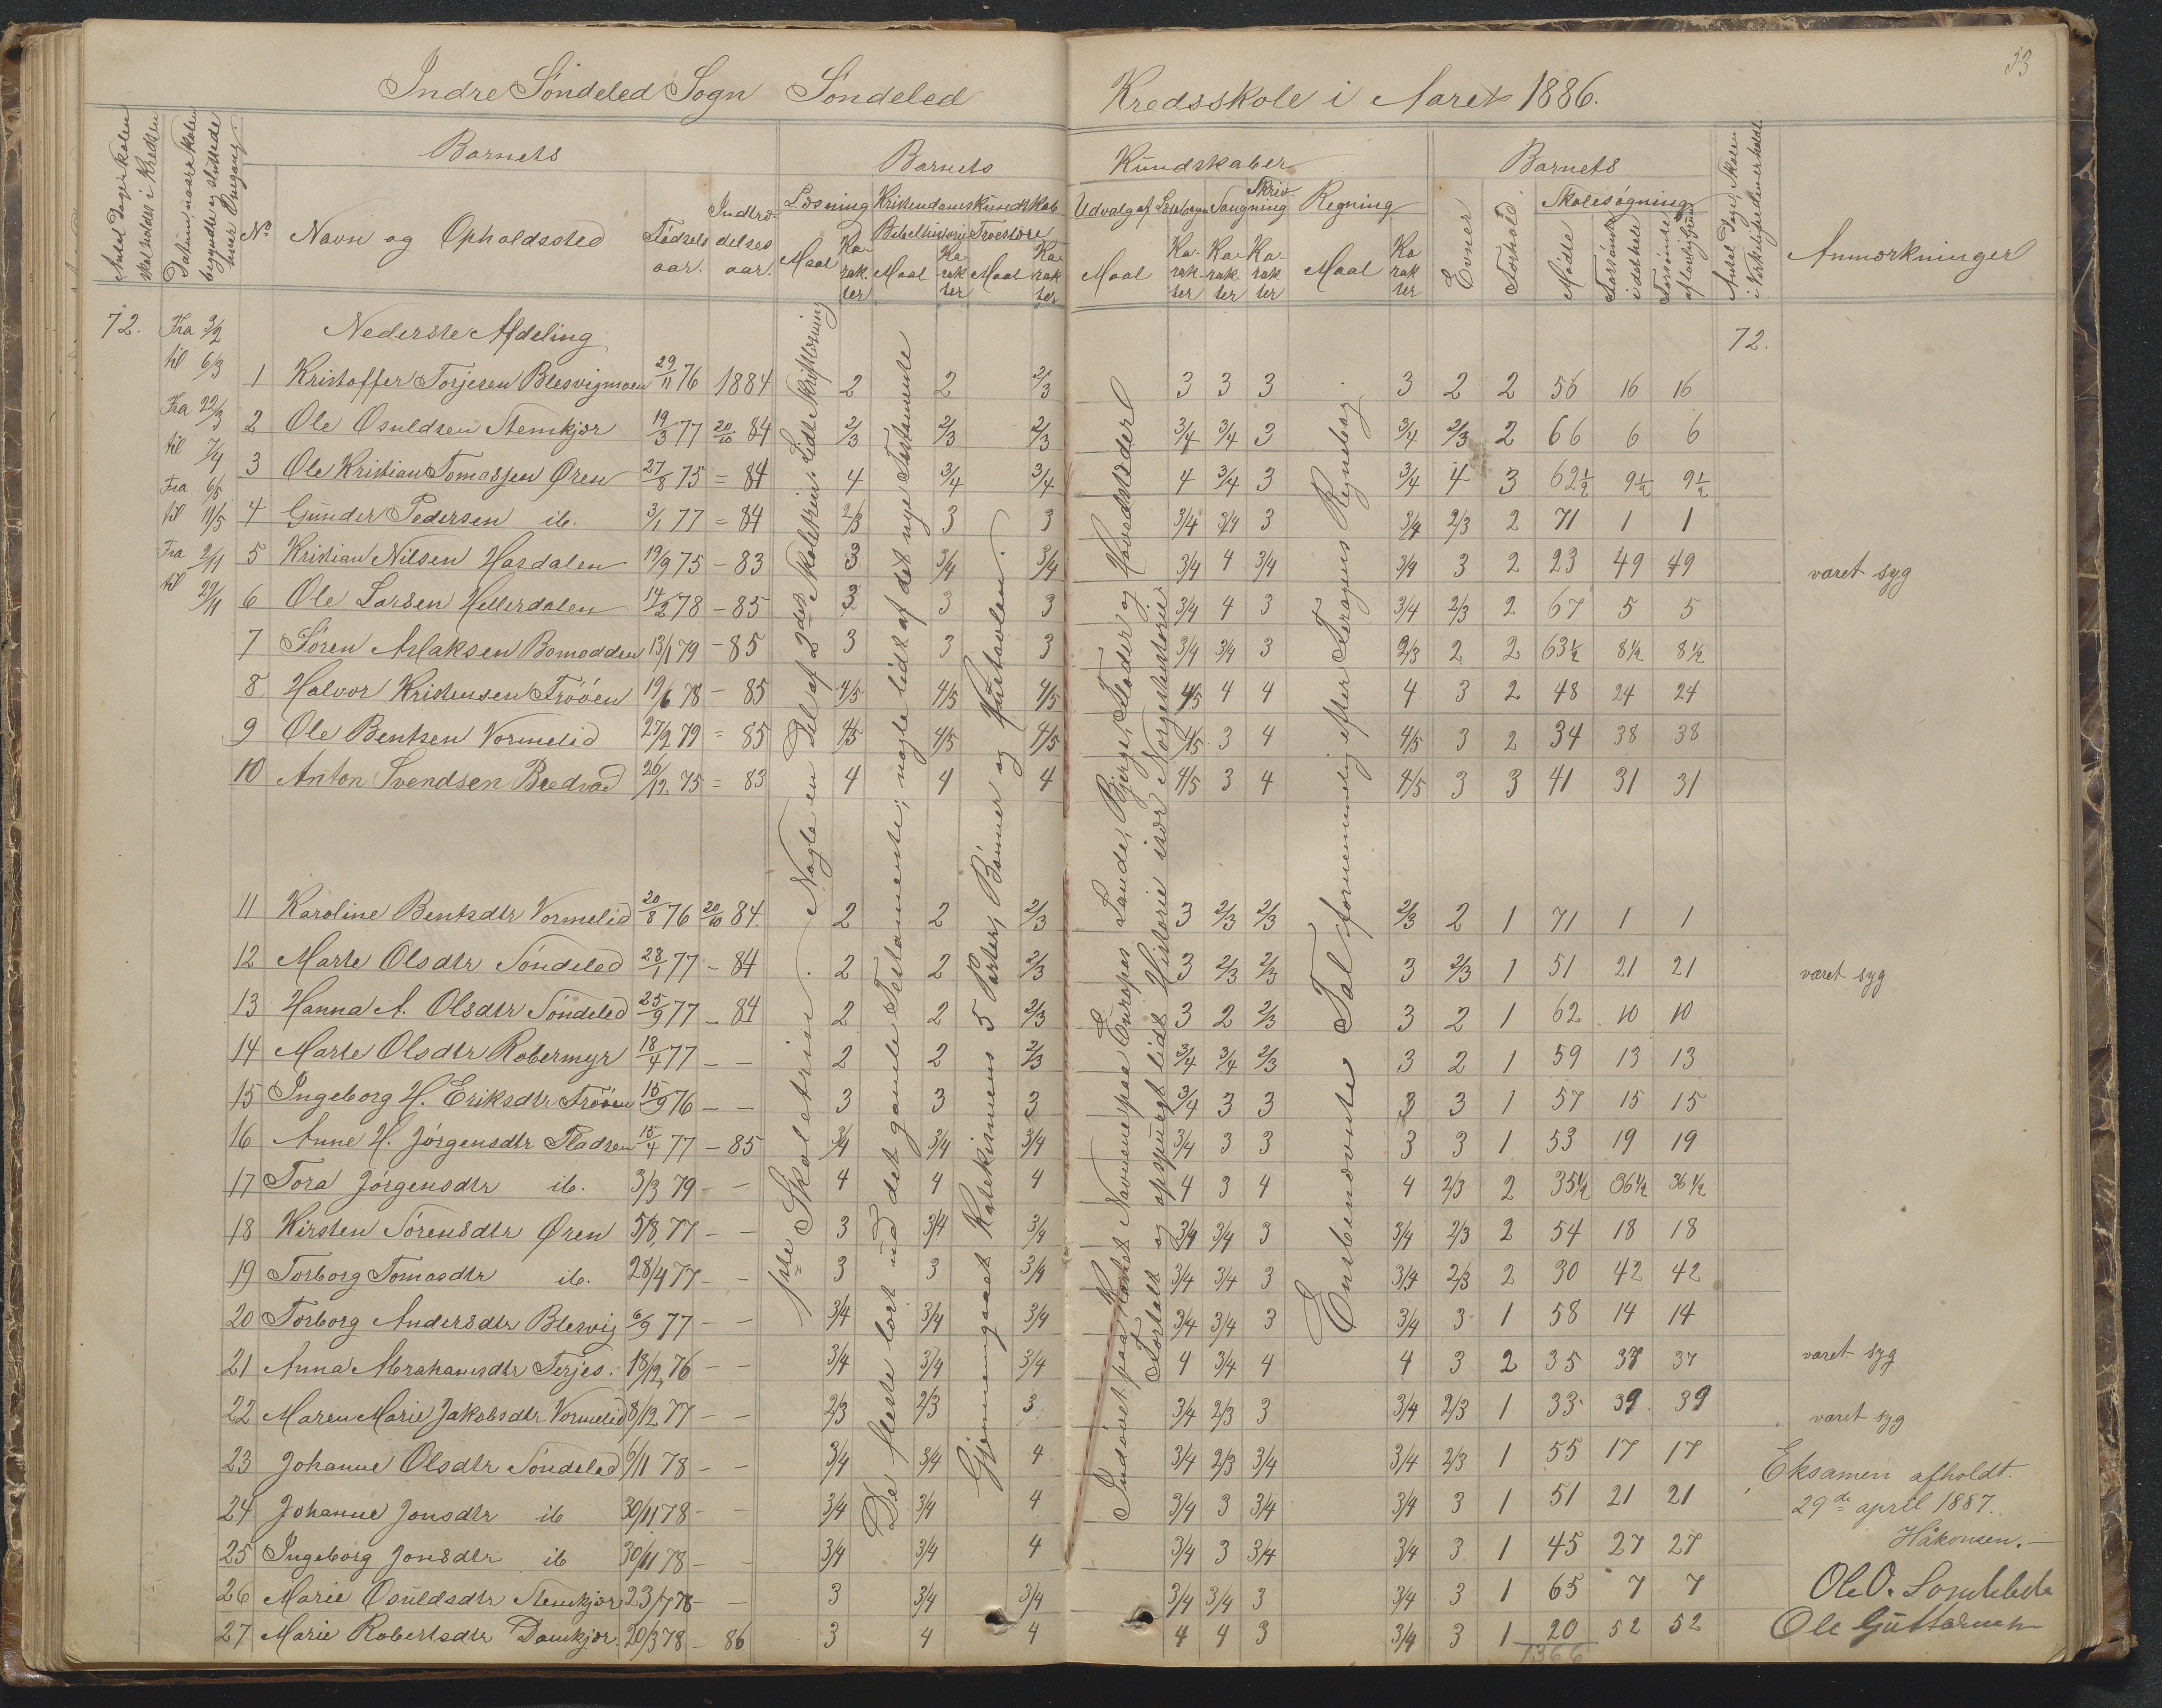 53
Indre Söndeled Sogn Söndeled Kredsskole i Aaret 1886.
Antal Dage Skolen skal holdes i Kredsen
Datum, naar Skolen begyndte og sluttede hver Omgang.
Barnets
Barnets Kundskaber
Barnets
No
Navn og Opholdssted
Födselsaar.
Indtrædelsesaar.
Læsning
Kristendomskundskab
Bibelhistorie Troeslære
Maal Karakter Maal Karakter Maal Karakter
Udvalg af Læsebogen Sang Skrivning Regning
Maal Karakter Karakter Karakter Maal Karakter
Evner
Forhold.
Skolesögning
Mödte
Forsömte i det Hele
Forsömte af lovlig Grund
Antal Dage, Skolen i Virkeligheden er holdt.
Anmærkninger
72. Nederste Afdeling 72.
Fra 3/2
til 6/3
Fra 22/3
til 7/4
Fra 6/5
til 11/5
Fra 2/11
til 29/11
1 Kristoffer Torjesen Blesvigmoen 29/11 76 1884 2 2 2/3 3 3 3 3 2 2 56 16 16
2 Ole Osuldsen Stemkjær 19/3 77 20/10 84 2/3 2/3 2/3 3/4 3/4 3 3/4 2/3 2 66 6 6
3 Ole Kristian Tomassen Øren 27/8 75 = 84 4 3/4 3/4 4 3/4 3 3/4 4 3 62 1/2 9 1/2 9 1/2
4 Gunder Pedersen ib. 3/1 77 = 84 2/3 3 3 3/4 3/4 3 3/4 2/3 2 71 1 1
5 Kristian Nilsen Hasdalen 19/9 75 - 83 3 3/4 3/4 3/4 4 3/4 3/4 3 2 23 49 49 været syg
6 Ole Larsen Hellerdalen 14/2 78 - 85 3 3 3 3/4 4 3 3/4 2/3 2 67 5 5
7 Sören Aslaksen Bomodden 13/1 79 - 85 3 3 3 3/4 3/4 3 2/3 2 2 63 1/2 8 1/2 8 1/2
8 Halvor Kristensen Tröóen 19/6 78 - 85 4/5 4/5 4/5 4/5 4 4 4 3 2 48 24 24
9 Ole Bentsen Vormelid 27/2 79 = 85 4/5 4/5 4/5 4/5 3 4 4/5 3 2 34 38 38
10 Anton Svendsen Bredvad 26/12 75 = 83 4 4 4 4/5 3 4 4/5 3 3 41 31 31
11 Karoline Bentsdtr Vormelid 20/8 76 20/10 84. 2 2 2/3 3 2/3 2/3 2/3 2 1 71 1 1
12 Marte Olsdtr Söndeled 28/1 77 - 84 2 2 2/3 3 2/3 2/3 3 2/3 1 51 21 21 været syg
13 Hanna A. Olsdtr Söndeled 25/9 77 - 84 2 2 2/3 3 2 2/3 3 2 1 62 10 10
14 Marte Olsdtr Robermyr 18/4 77 - - 2 2 2/3 3/4 3/4 2/3 3 2 1 59 13 13
15 Ingeborg H. Eriksdtr Tröóen 15/9 76 - - 3 3 3 3/4 3 3 3 3 1 57 15 15
16 Anne H. Jörgensdtr Pladsen 15/4 77 - 85 3/4 3/4 3/4 3/4 3 3 3 3 1 53 19 19
17 Tora Jörgensdtr ib. 3/3 79 - - 4 4 4 4 3 4 4 2/3 2 35 1/2 36 1/2 36 1/2
18 Kirsten Sörensdtr Øren 5/8 77 - - 3 3/4 3/4 3/4 3/4 3 3/4 2/3 2 54 18 18
19 Torborg Tomasdtr ib. 28/4 77 - - 3 3 3/4 3/4 3/4 3 3/4 2/3 2 30 42 42
20 Torborg Andersdtr Blesvig 6/9 77 - - 3/4 3/4 3/4 3/4 3/4 3 3/4 3 1 58 14 14
21 Anna Abrahamsdtr Terjes. 18/12 76 - - 3/4 3/4 3/4 4 3/4 4 4 3 2 35 37 37 været syg
22 Maren Marie Jakobsdtr Vormelid 8/12 77 - - 2/3 2/3 3 3/4 2/3 3 3/4 2/3 1 33 39 39 været syg
23 Johanne Olsdtr Söndeled 6/11 78 - - 3/4 3/4 4 3/4 2/3 3/4 3/4 2/3 1 55 17 17
24 Johanne Jonsdtr ib 30/11 78 - - 3/4 3/4 4 3/4 3 3/4 3/4 3 1 51 21 21
25 Ingeborg Jonsdtr ib 30/11 78 - - 3/4 3/4 4 3/4 3 3/4 3/4 3 1 45 27 27
26 Marie Osuldsdtr Stemkjær 23/7 78 - - 3 3/4 3/4 3/4 3/4 3 3/4 3 1 65 7 7
27 Marie Robertsdtr Damkjær. 20/3 78 - 86 3 4 4 4 4 3 3/4 3 1 20 52 52
1366
1ste Skoletrin. Nogle en Del af 2det Skoletrin. Lidt Skriftlæsning
De fleste læst ud det gamle Testamente; nogle lidt af det nye Testamente
Gjennemgaaet Katekismens 5 Parter, Bönner og Hustavlen.
Indövet paa Kartet Navnene paa Europas Lande, Bjerge, Floder og Hovedstæder
Fortalt og opspurgt lidt Historie især Norgeshistorie
Enskenævnte Tal fornemmelig efter Regnebog
Eksamen afholdt.
29de april 1887.
Håkonsen.
Ole O. Söndeled
Ole Guttormsen